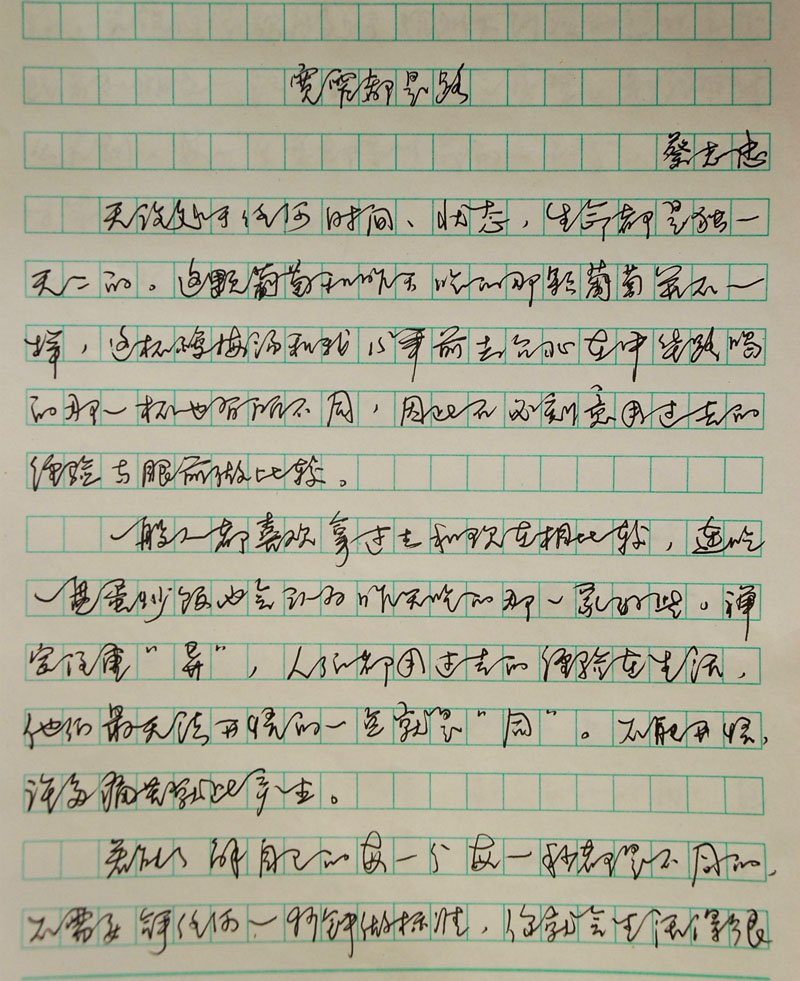 宽窄都是路
蔡志忠
无论处于任何时间、状态，生命都是独一
无二的。这颗葡萄和昨天吃的那颗葡萄并不一
样，这杯酸梅汤和我15年前去台北在中华路喝
的那一杯也有所不同，因此不必刻意用过去的
经验与眼前做比较。
一般人都喜欢拿过去和现在相比较，连吃
一盘蛋炒饭也会认为昨天吃的那一家好些。禅
宗注重“异”，人们都用过去的经验在生活，
他们最无法开悟的一点就是“同”。不能开悟，
许多痛苦就此产生。
若能了解自己的每一个每一秒都是不同的，
不需要拿任何一秒钟做标准，你就会生活得很